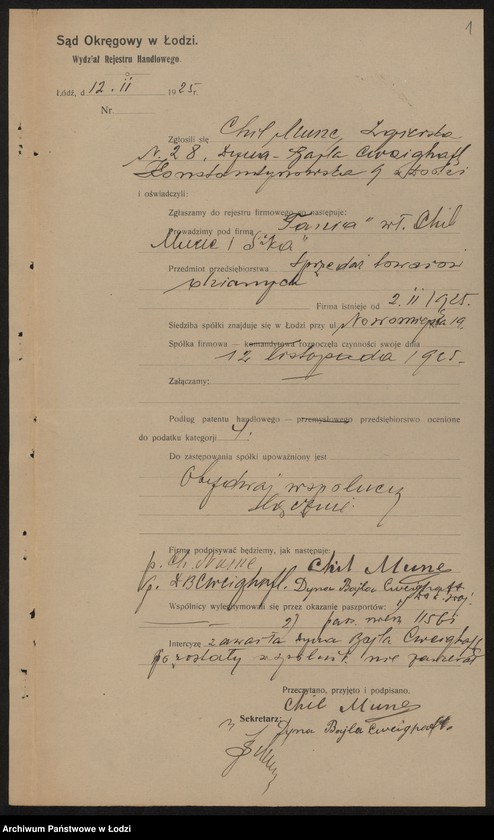 1
Sąd Okręgowy w Łodzi.
Wydział Rejestru Handlowego.
Łódź, d 12.II 1925 r.
Nr.
Zgłosili się Chil Munc, Zgierska
N. 28, Dyna-Bajla Cwajghaft
Konstantynowska 9 w Łodzi
i oświadczyli:
Zgłaszamy do rejestru firmowego co następuje:
Prowadzimy pod firmą wł. Chil
Munc i S-ka"
Przedmiot przedsiębiorstwa Sprzedaż towarów
Firma istnieje od 2.II/1925.
Siedziba spółki znajduje się w Łodzi przy ul. Nowomiejska 19.
Spółka firmowa — komandytowa rozpoczęła czynności swoje dnia
12 listopada 1925.
Załączamy:
Podług patentu handlowego — przemysłowego przedsiębiorstwo ocenione
do podatku kategorji 4.
Do zastępowania spółki upoważniony jest
Obydwaj wspólnicy
łącznie
Firmę podpisywać będziemy, jak następuje:
p. Ch. Munc Chil Munc
p. Dyna Bajla Cwajghaft
Wspólnicy wylegitymowali się przez okazanie paszportów:
2)
Intercyzę zawarła Dyna Bajla Cwajghaft
pozostały wspólnik nie zawierał
Przeczytano, przyjęto i podpisano.
Chil Munc
Sekretarz: Dyna Bajla Cwajghaft
Archiwum Państwowe w Łodzi